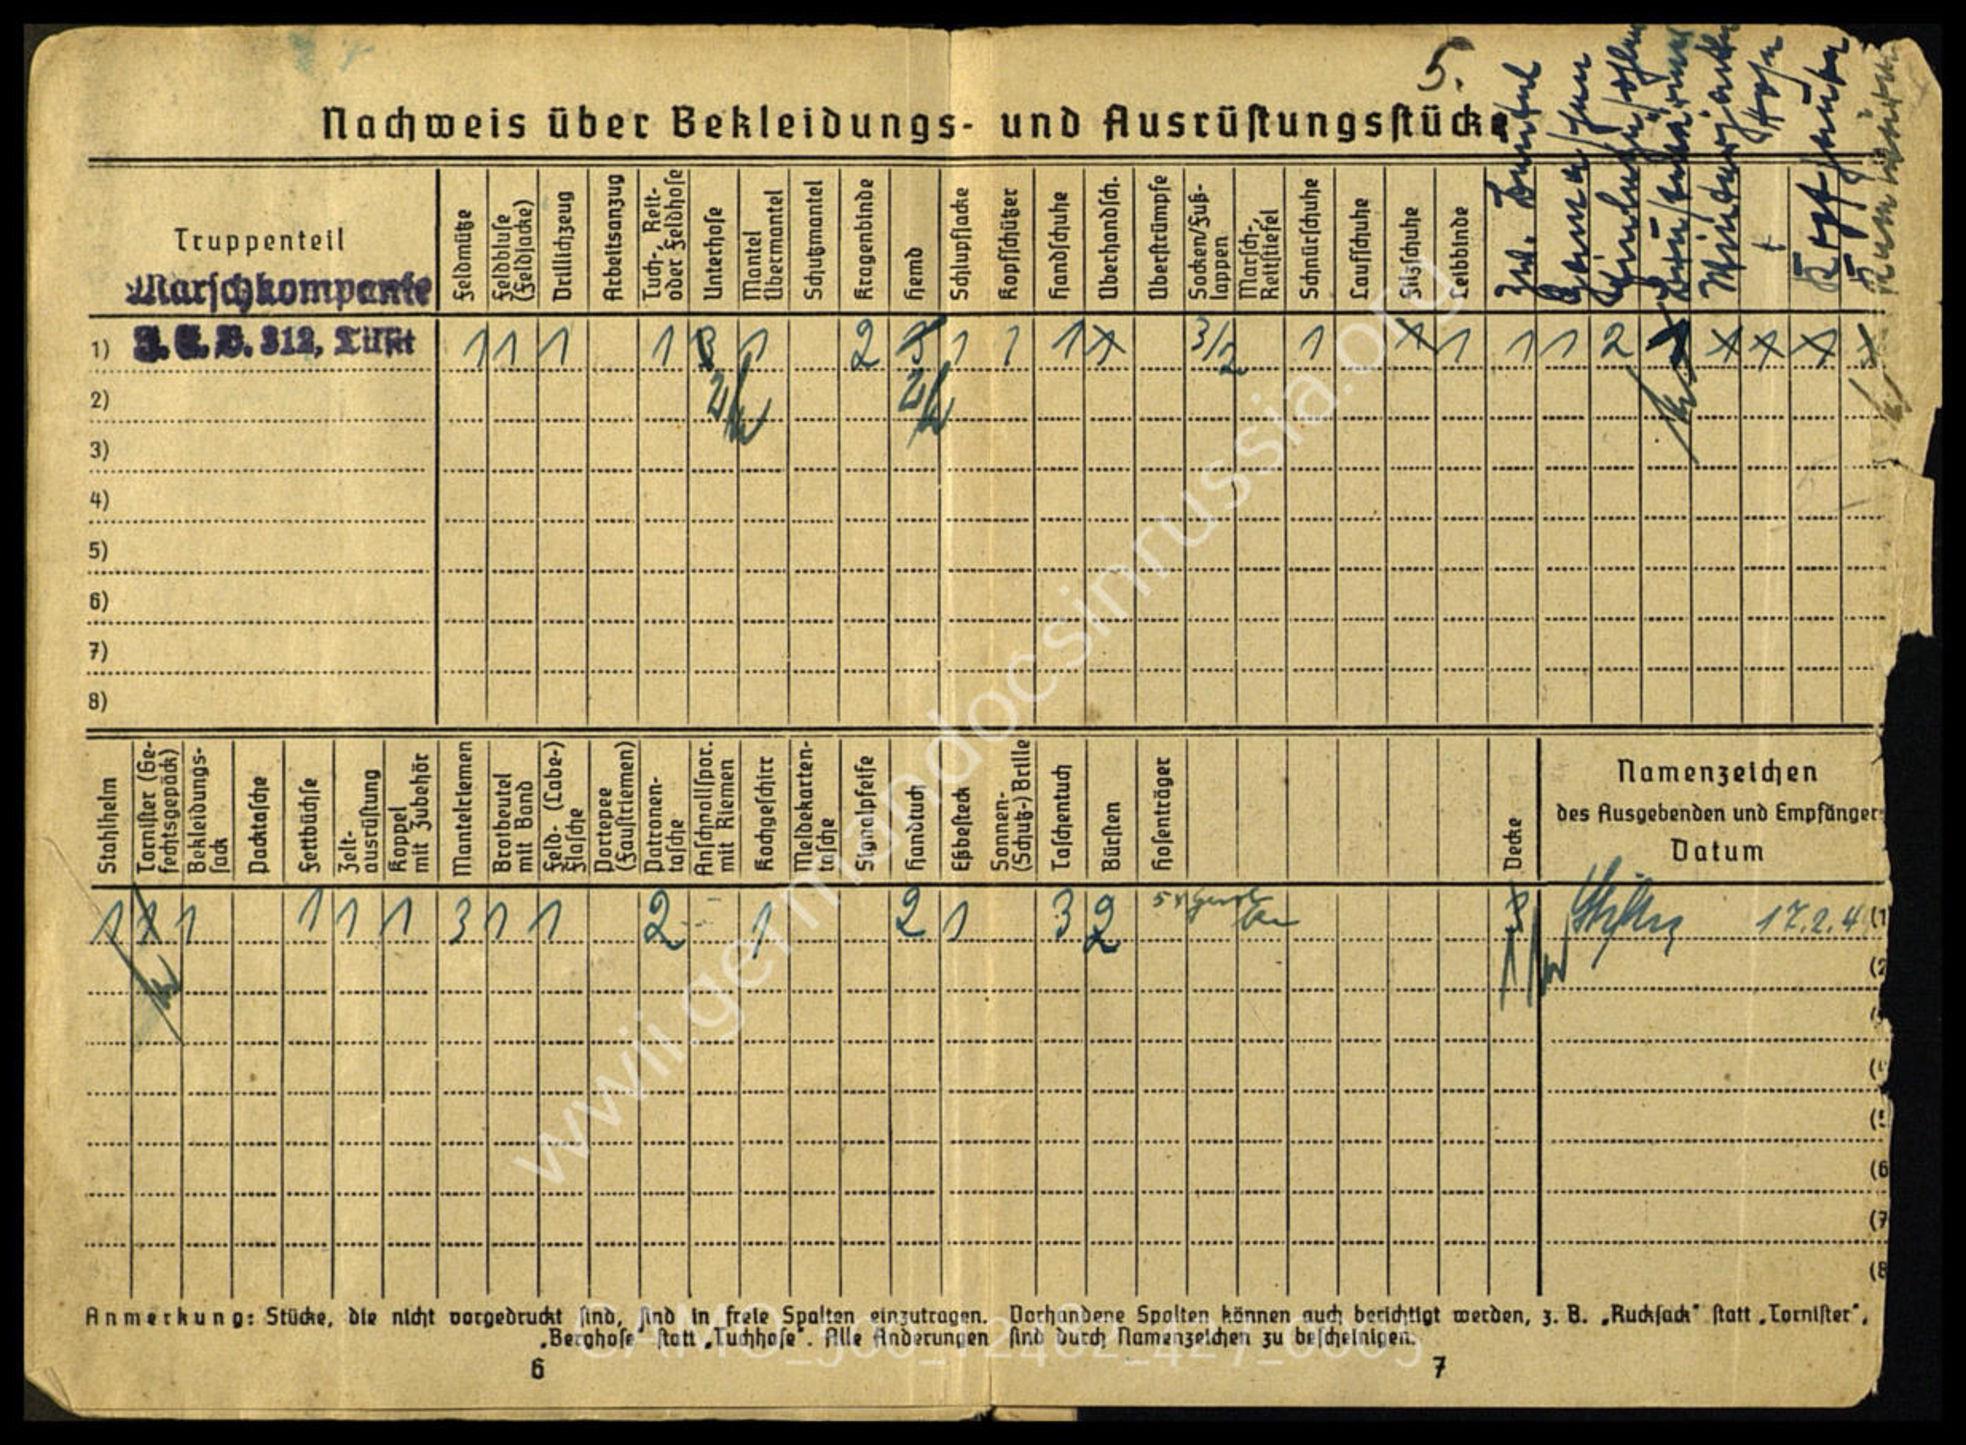 5.
Nachweis über Bekleidungs- und Ausrüstungsstücke
Truppenteil
Marschkompanie
312, Tilsit
Feldmütze
Feldbluse (Feldjacke)
Drillichzeug
Arbeitsanzug
Tuch-, Reit- oder Feldhose
Unterhose
Mantel Übermantel
Schutzmantel
Kragenbinde
Hemd
Schlupfjacke
Kopfschützer
Handschuhe
Überhandsch.
Überstrümpfe
Socken/Fuß-lappen
Marsch-, Reitstiefel
Schnürschuhe
Laufschuhe
Filzschuhe
Leibbinde
Hose
1) 1 1 1 1 3 1 2 3 1 1 1 1 3/2 1 1 1 1 1 2
2) 4 4
3)
4)
5)
6)
7)
8)
Stahlhelm
Tornister (Ge-fechtsgepäck)
Bekleidungs-sack
Packtasche
Fettbüchse
Zelt-ausrüstung
Koppel mit Zubehör
Mantelriemen
Brotbeutel mit Band
Feld- (Labe-) Flasche
Portepee (Faustriemen)
Patronen-tasche
Anschnallspor. mit Riemen
Kochgeschirr
Meldekarten-tasche
Signalpfeife
Handtuch
Eßbesteck
Sonnen- (Schutz-) Brille
Taschentuch
Bürsten
Hosenträger
Decke
Namenzeichen
des Ausgebenden und Empfänger
Datum
1 1 1 1 1 1 3 1 1 2 1 2 1 3 2 17.2.4 (1
(2
(5
(6
(7
(8
Anmerkung: Stücke, die nicht vorgedruckt sind, sind in freie Spalten einzutragen. Vorhandene Spalten können auch berichtigt werden, z. B. „Rucksack“ statt „Tornister“,
„Berghose“ statt „Tuchhose“. Alle Änderungen sind durch Namenzeichen zu bescheinigen.
6
7
wwii.germandocsinrussia.org